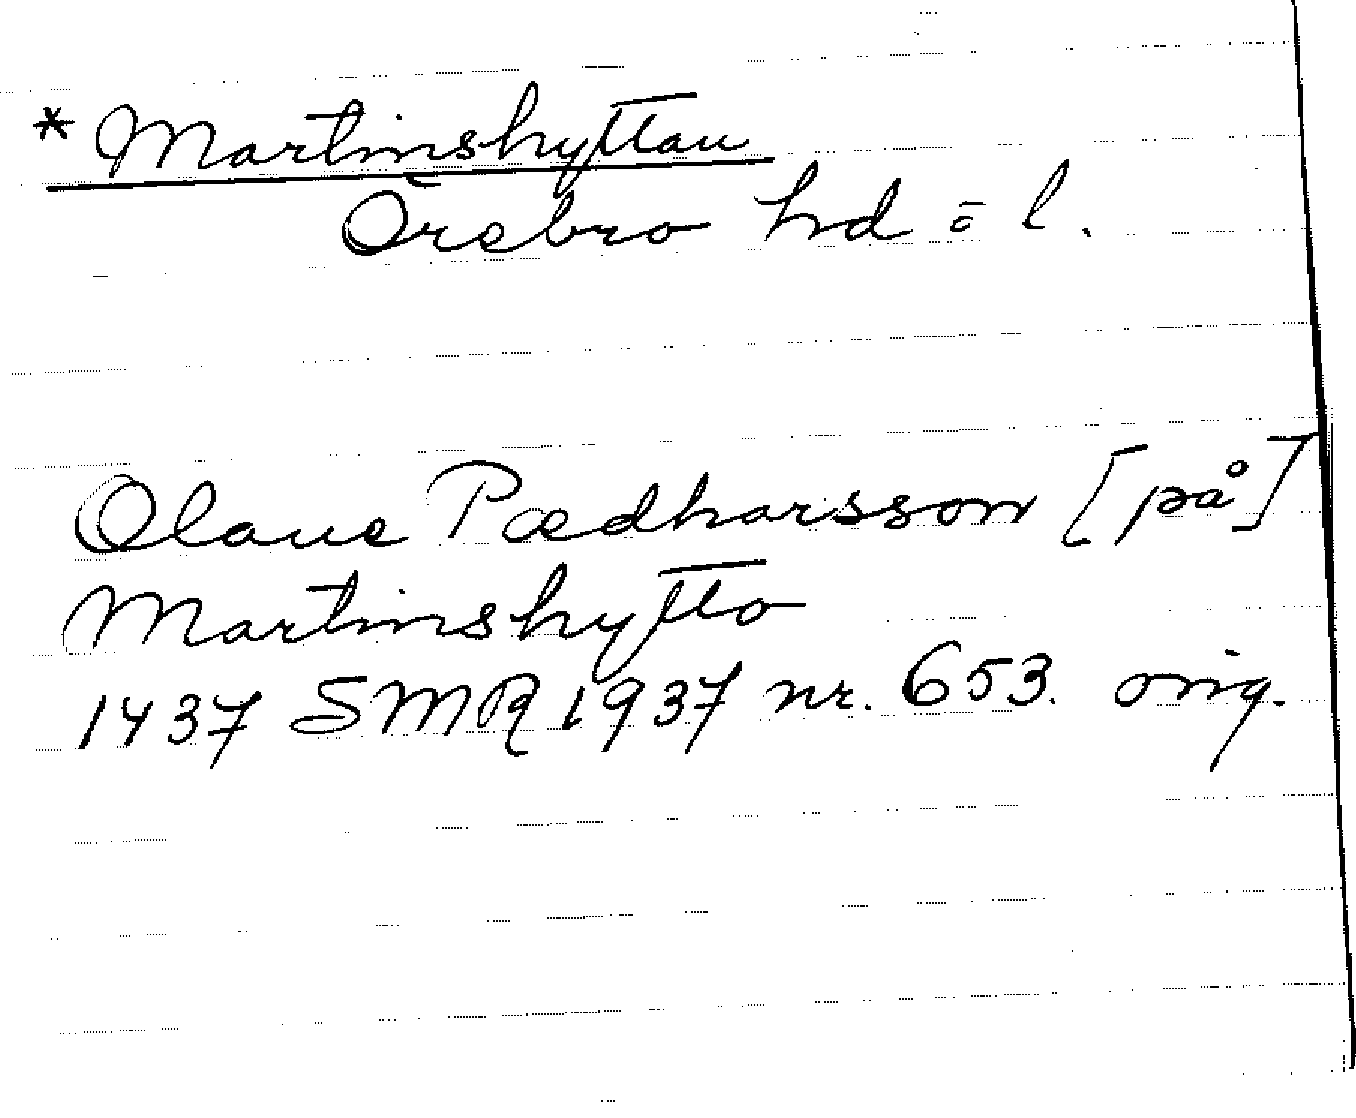 * Martinshyttan
Örebro hd o l.
Olaus Pædharsson [på]
Martinshytto
1437 SMR 1937 nr. 653. orig.